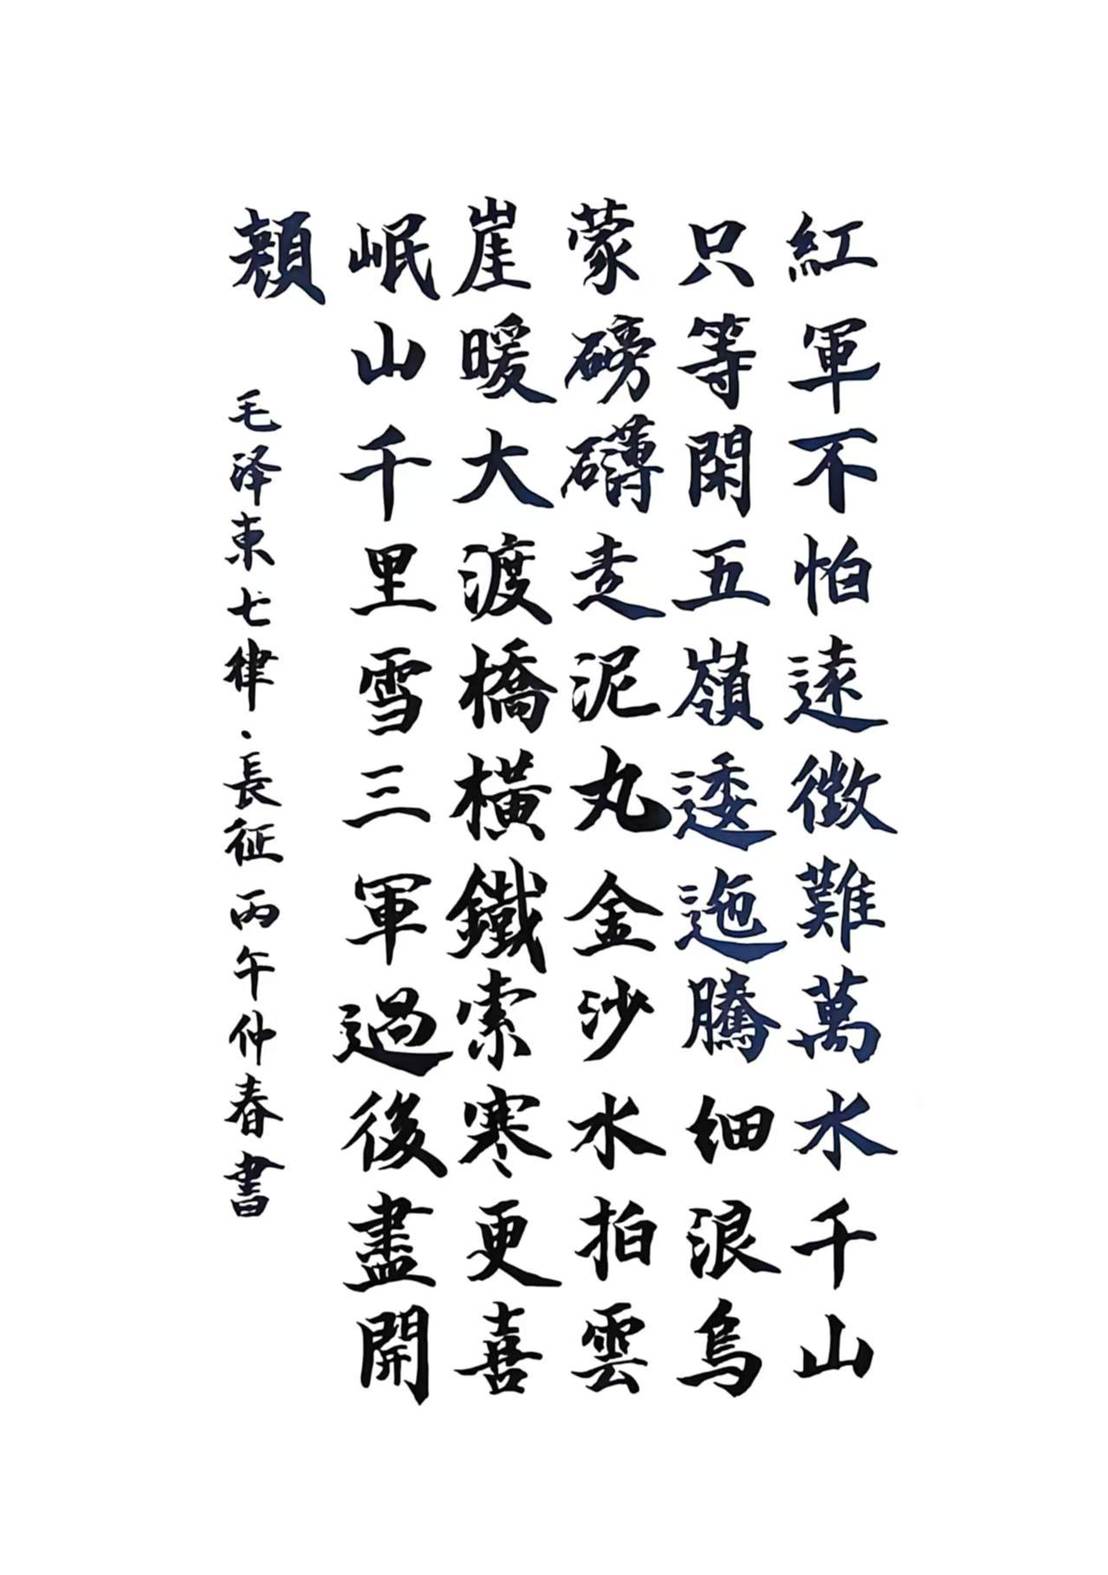 紅軍不怕遠徵難萬水千山
只等閑五嶺逶迤騰细浪烏
蒙磅礴走泥丸金沙水拍雲
崖暖大渡橋橫鐵索寒更喜
岷山千里雪三軍過後盡開
顏
毛泽東七律·長征丙午仲春書